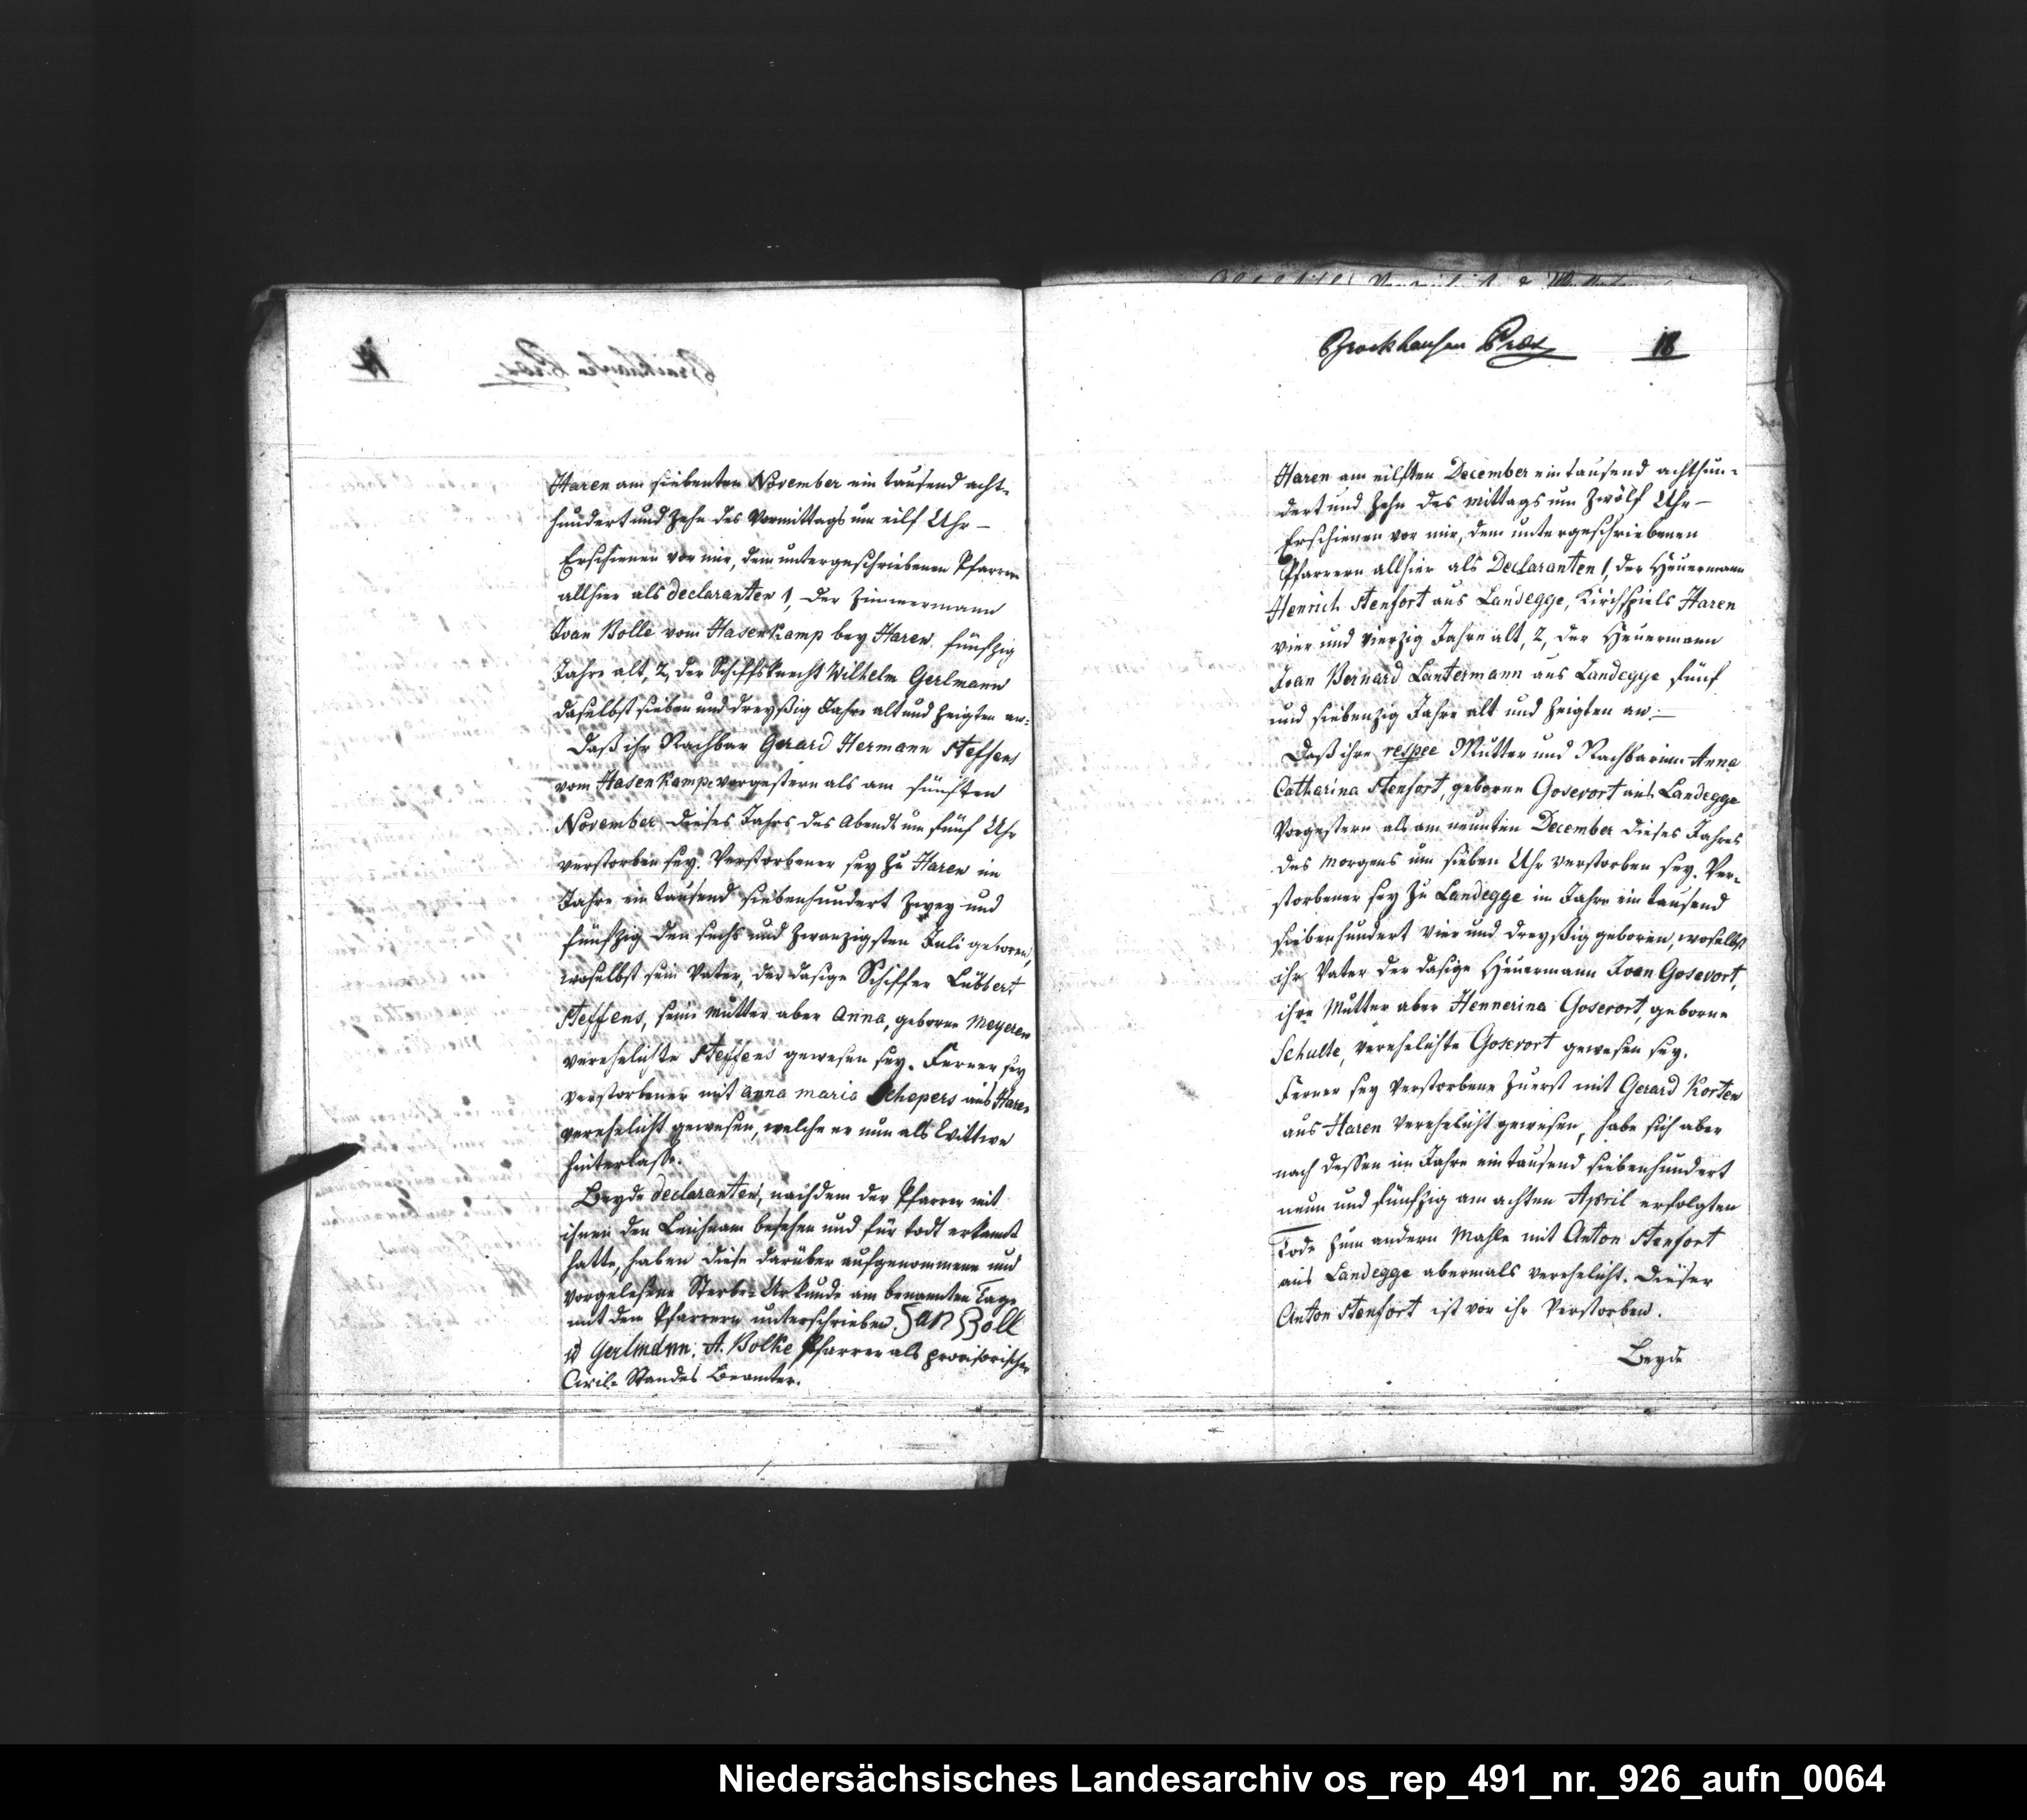 Haren am siebenten November ein tausend acht-
hundert und zehn des Vormittags um eilf Uhr –
Erschienen vor mir, dem untergeschriebenen Pfarrer
allhier als declaranten 1, der Zimmermann
Joan Bolle vom Hasenkamp bey Haren, fünfzig
Jahre alt, 2, der Schiffsknecht Wilhelm Gerlmann
daselbst sieben und dreyßig Jahre alt und zeigten an:
Daß ihr Nachbar Gerard Hermann Steffens
vom Hasenkampe vorgestern als am fünften
November dieses Jahrs des Abends um fünf Uhr
verstorben sey. Verstorbener sey zu Haren im
Jahre ein tausend siebenhundert zwey und
fünfzig den sechs und zwanzigsten Juli geboren,
woselbst sein Vater, der dasige Schiffer Lübbert
Steffens, seine Mutter aber Anna, geborne Meyeren
verehelichte Steffens gewesen sey. Ferner sey
verstorbener mit Anna Maria Schepers aus Haren
verehelicht gewesen, welche er nun als Wittwe
hinterlasse.
Beyde declaranten, nachdem der Pfarrer mit
ihnen den Leichnam besehen und für todt erkannt
hatte, haben diese darüber aufgenommene und
vorgelesene Sterbe-Urkunde am benannten Tage
mit dem Pfarrern unterschrieben. Jan Boll
W Gerlmann. A. Bolke Pfarrer als provisorischer
Civil-Standes Beamter.
Brockhausen Präs 18
Haren am eilften December ein tausend achthun-
dert und zehn des Mittags um zwölf Uhr –
Erschienen vor mir, dem untergeschriebenen
Pfarrern allhier als Declaranten 1, der Heuermann
Henrich Stenfort aus Landegge, Kirchspiels Haren
vier und vierzig Jahre alt, 2, der Heuermann
Joan Bernard Lantermann aus Landegge fünf
und siebenzig Jahre alt und zeigten an: –
Daß ihre respee Mutter und Nachbarinn Anna
Catharina Stenfort, geborne Gosevort aus Landegge
Vorgestern als am neunten December dieses Jahres
des Morgens um sieben Uhr verstorben sey. Ver-
storbener sey zu Landegge im Jahre ein tausend
siebenhundert vier und dreyßig geboren, woselbst
ihr Vater der dasige Heuermann Joan Gosevort,
ihre Mutter aber Hennerina Gosevort, geborne
Schulte, verehelichte Gosevort gewesen sey.
Ferner sey Verstorbene zuerst mit Gerard Korten
aus Haren verehelicht gewesen, habe sich aber
nach dessen im Jahre ein tausend siebenhundert
neun und fünfzig am achten April erfolgten
Tode zum andern Mahle mit Anton Stenfort
aus Landegge abermals verehelicht. Dieser
Anton Stenfort ist vor ihr verstorben.
Beyde
Niedersächsisches Landesarchiv os_rep_491_nr._926_aufn_0064